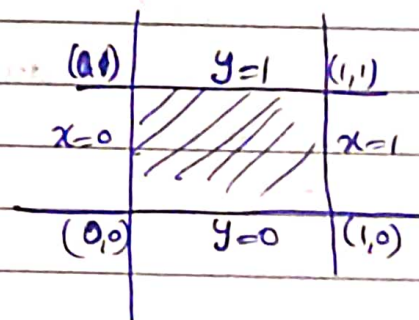 (0,1) y=1 (1,1)
x=0 x=1
(0,0) y=0 (1,0)